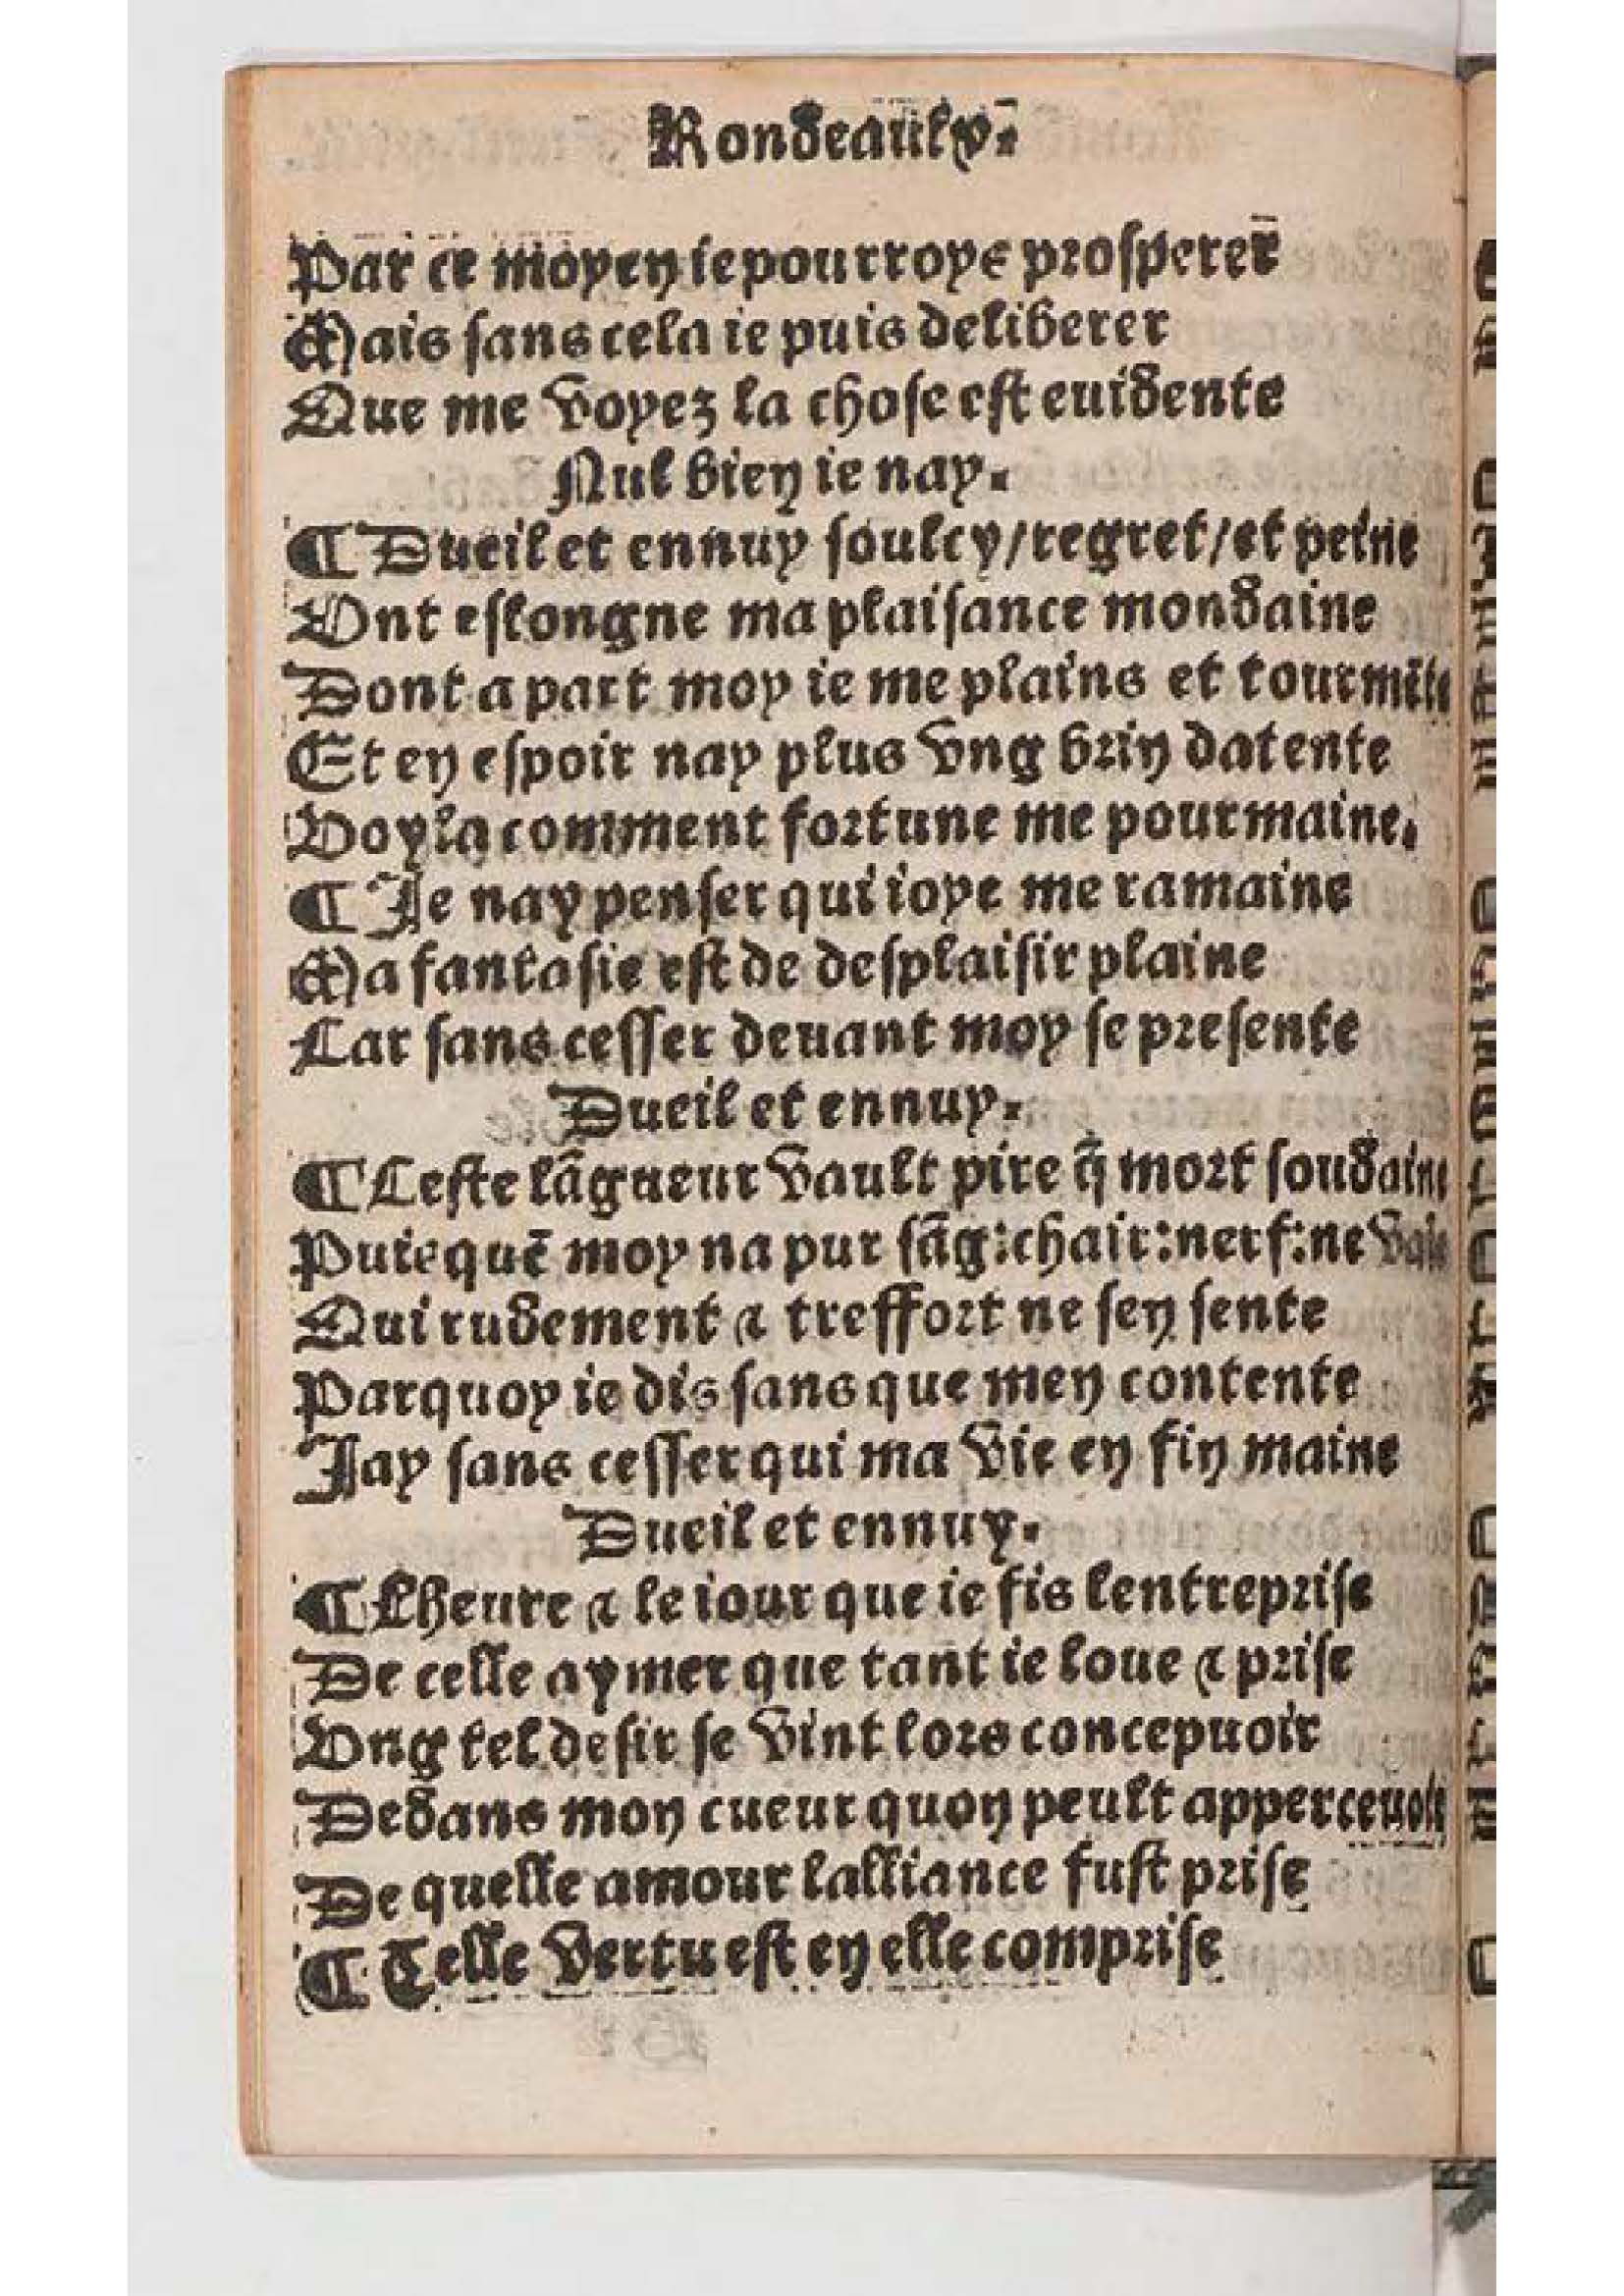 Rondeaulx.
Par ce moyen ie pourroye prosperer
Mais sans cela ie puis deliberer
Que me voyez la chose est euidente
Nul bien ie nay.
¶ Dueil et ennuy soulcy/regret/et peine
Ont eslongne ma plaisance mondaine
Dont a part moy ie me plains et tourmẽte
Et en espoir nay plus vng brin datente
Voyla comment fortune me pourmaine.
¶ Je nay penser qui ioye me ramaine
Ma fantasie est de desplaisir plaine
Car sans cesser deuant moy se presente
Dueil et ennuy.
¶ Ceste lãgueur vault pire q̃ mort soudaine
Puis quẽ moy na pur sãg:chair:nerf:ne
Qui rudement ⁊ treffort ne sen sente
Parquoy ie dis sans que men contente
Jay sans cesser qui ma vie en fin maine
Dueil et ennuy.
¶ Lheure ⁊ le iour que ie fis lentreprise
De celle aymer que tant ie loue ⁊ prise
Vng tel desir se vint lors concepuoir
Dedans mon cueur quon peult apperceuoir
De quelle amour lalliance fust prise
¶ Telle vertu est en elle comprise